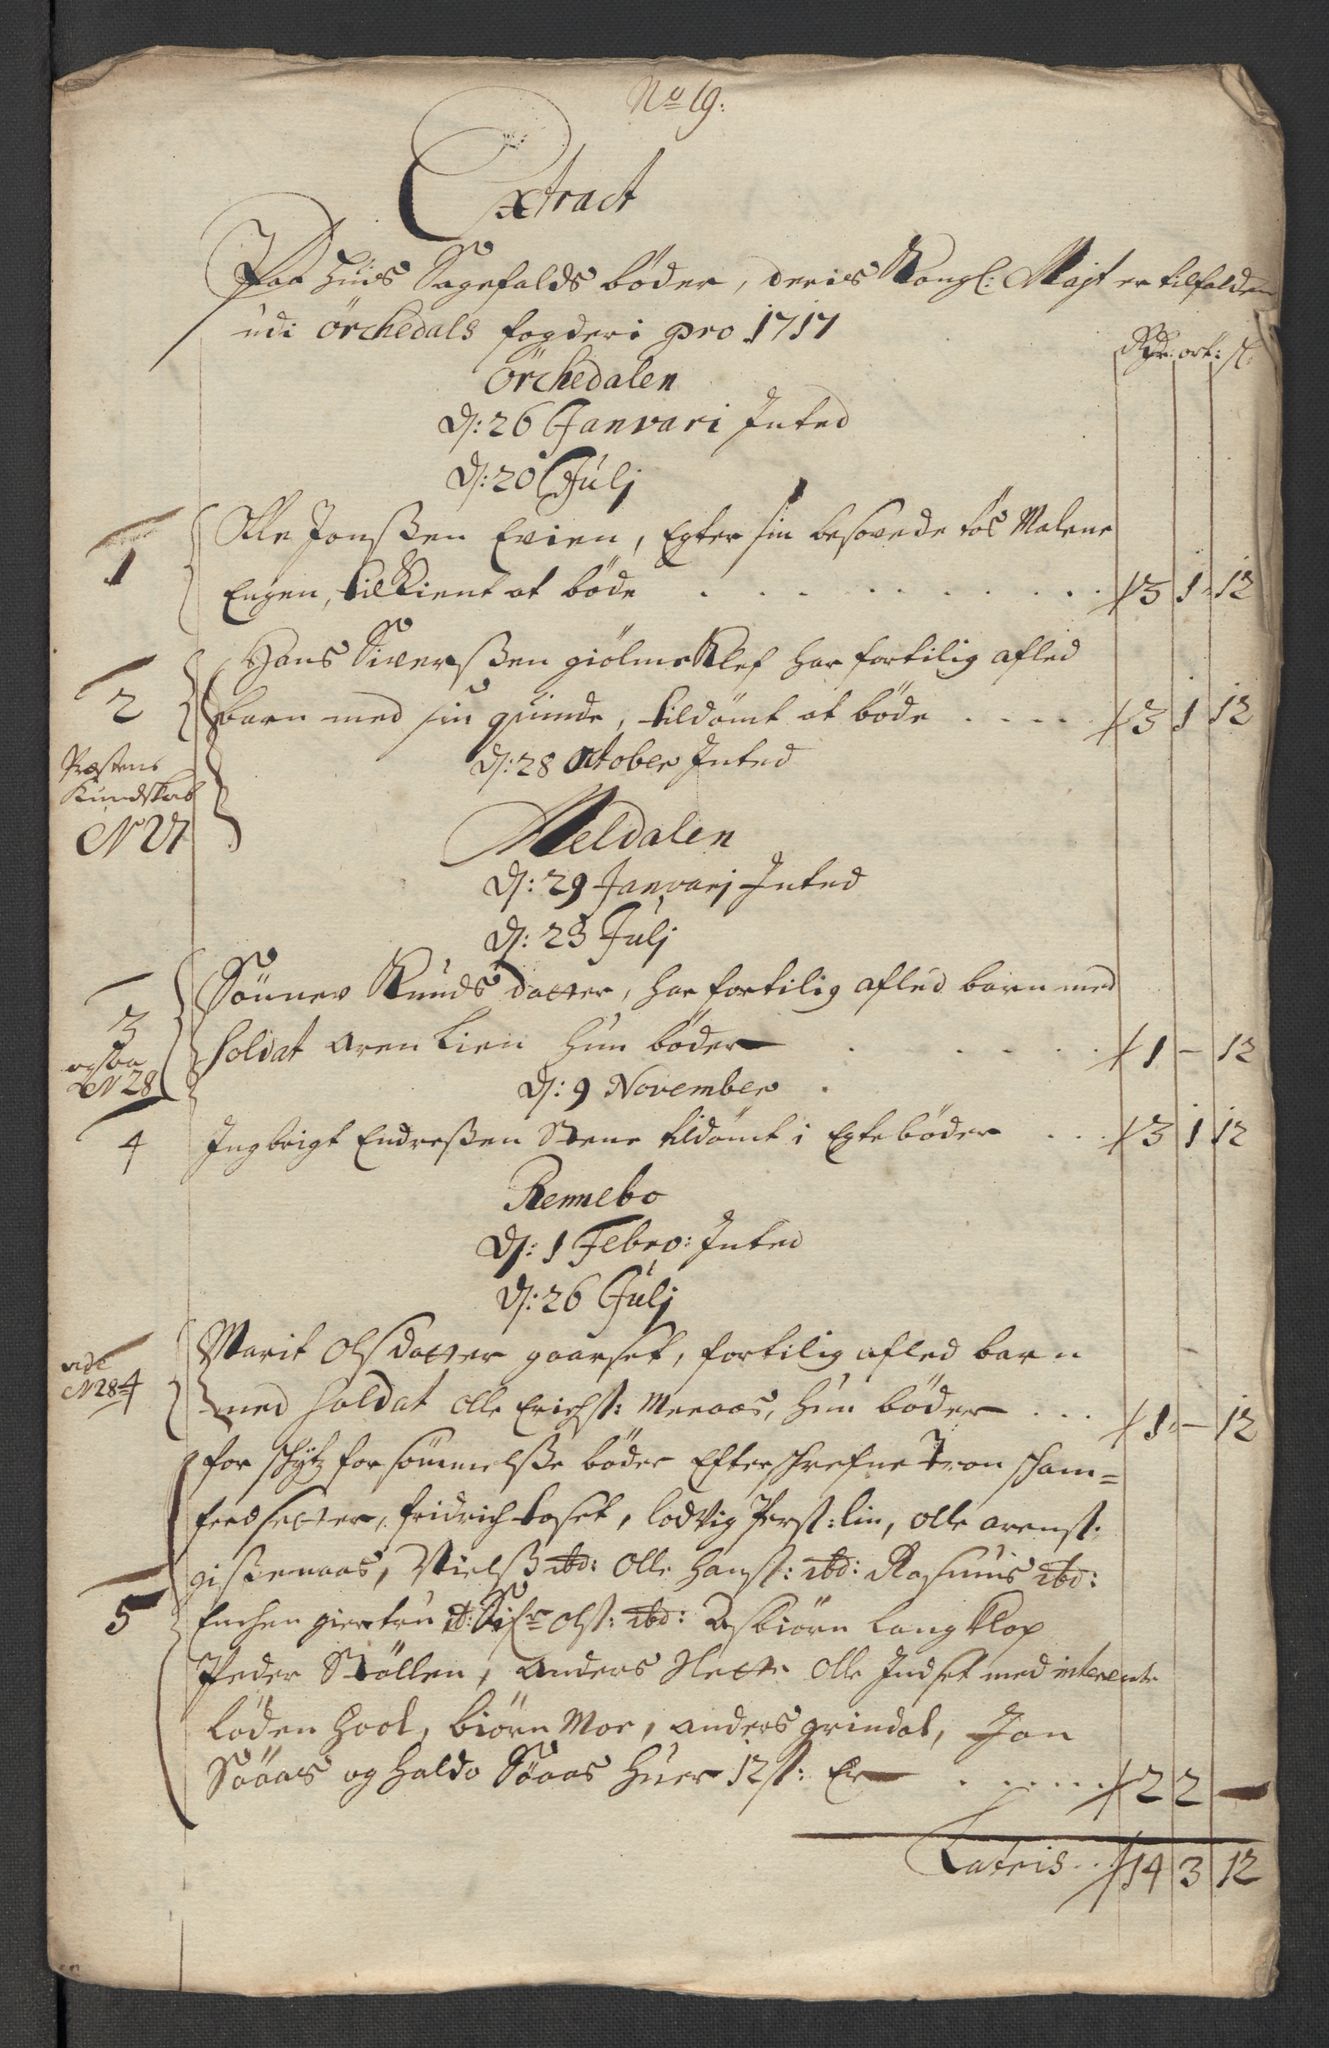 No 19:
Extract
Paa Huis Sagefalds bøder, deris Kongl: Majt er tilfalden
udi Örchedals fogderi pro 1717
Rdr: ort: s:
Örchedalen
D: 26 Janvari Inted
D: 20 Julj
1 Olle Jonßen Evien, Egter sin besovede tøs Malene
Engen, tilkient at bøde . . . . 3 1 12
2 Hans Siverßen giölmeKlef har fortilig afled
barn med sin quinde, tildömt at bøde . . . . 3 1 12
Præstens
Kundskab
N 27
D: 28 October Inted
Meldalen
D: 29 Janvarj Inted
D: 23 Julj
3 Sönnev Knuds datter, har fortilig afled barn med
ogsaa
N 28
Soldat Aren Lien hun bøder . . . . 1 – 12
D: 9 November
4 Ingbrigt Endreßen Stene tildömt i Egtebøder . . . 3 1 12
Rennebo
D: 1 Febro: Inted
D: 26 Julj
vide
N 28
4
Marit Olsdatter gaarset, fortilig afled barn
med Soldat Olle Erichs: Meraas, hun bøder . . . 1 – 12
5 for schytz forsömmelsße bøder Efterschrefne Tron scham=
ferdsetter, fridrich toset, lodvig Pers: lin, olle arens:
gißenaas, Nielß ibd: Olle hans: ibd: Rasmus ibd:
Enchen giertru ibd: Sifr ols: ibd: Asbiörn Langklop
Peder Stöllen, Anders Slette Olle Indset med interent
Löden Hool, Biörn Moe, anders grindal, Jon
Sööaas og Haldo Sööaas huer 12 s: Er . . . . 2 2 –
Lateris . . 14 3 12